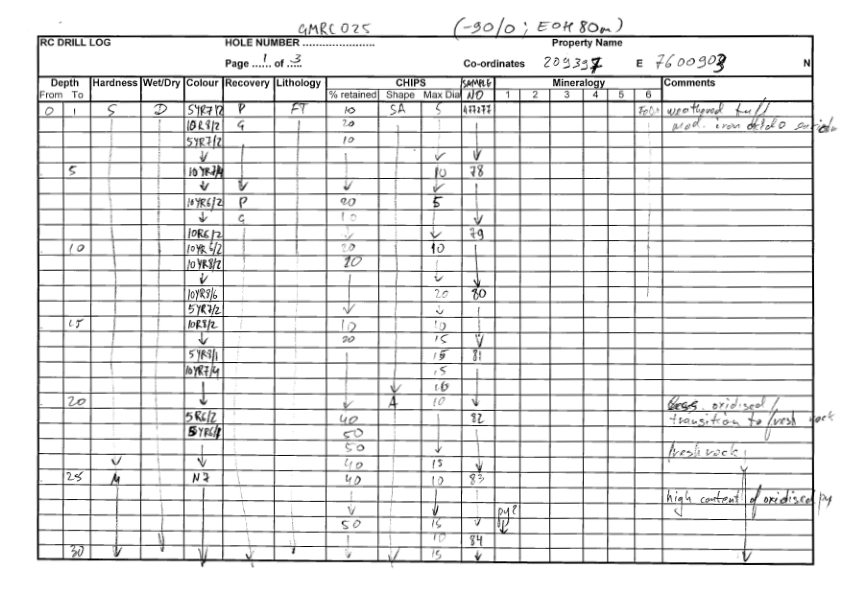 GMRC025 (-90/0; EOH 80m)
RC DRILL LOG HOLE NUMBER ........................ Property Name
Page ..1.. of ..3.. Co-ordinates 209397 E 7600903 N
Depth Hardness Wet/Dry Colour Recovery Lithology CHIPS SAMPLE Mineralogy Comments
From To % retained Shape Max Dia NO 1 2 3 4 5 6
0 1 S D 5YR7/2 P FT 10 SA 5 477277 weathered tuff/
10R8/2 G 20 mod. iron
5YR7/2 10
↓ ↓ ↓
5 10YR7/4 10 78
↓ ↓ ↓ ↓
10YR6/2 P 20 5
↓ G 10 ↓
10R6/2 ↓ ↓ 79
10 10YR5/2 20 10
10YR8/2 20
↓ ↓ ↓
10YR8/6 20 80
5YR7/2 ↓ ↓
15 10R8/2 10 10
↓ 20 15 ↓
5YR8/1 15 81
10YR7/4 15
↓ 10
20 ↓ ↓ A 10 ↓ less oxidised/
5R6/2 40 82 transition to fresh rock
5YR6/1 50
50 ↓ fresh rock
↓ ↓ 40 15 ↓
25 M N7 40 10 83
high content of oxidised py
↓ ↓ py?
50 15 ↓ ↓
↓ 10 84
30 ↓ ↓ ↓ ↓ ↓ ↓ 15 ↓ ↓